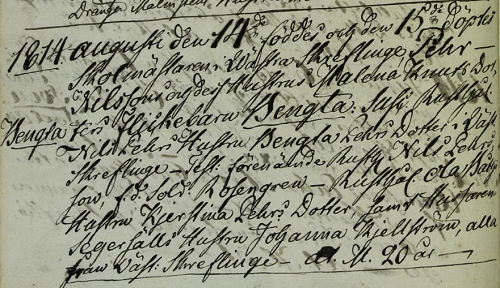 Drängen Malmsten
1814 augusti den 14de föddes och den 15de döptes
Skolmästaren i Västra Skreflinge Pehr
Nilssons och dess Hustrus Malena Knuts Dot-
Bengta ters Flickebarn Bengta. Susc: Rusthål:
Nils Pehrs Hustru Bengta Pehrs Dotter i Väst:
Skreflinge – Test: förenämde Rusth: Nils Pehrs-
son, f.d. Sold: Rosengren – Rusthål: Ola
Hustru Kjerstina Pehrs Dotter, samt Husaren
Segerfälls Hustru Johanna Kjellström, alla
från Väst: Skreflinge – d. M. 20 år –